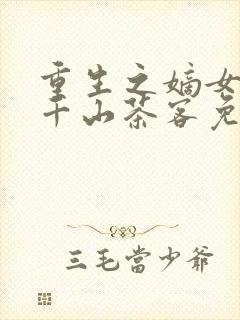 重生之嫡女
千山茶客免
三毛當少爺